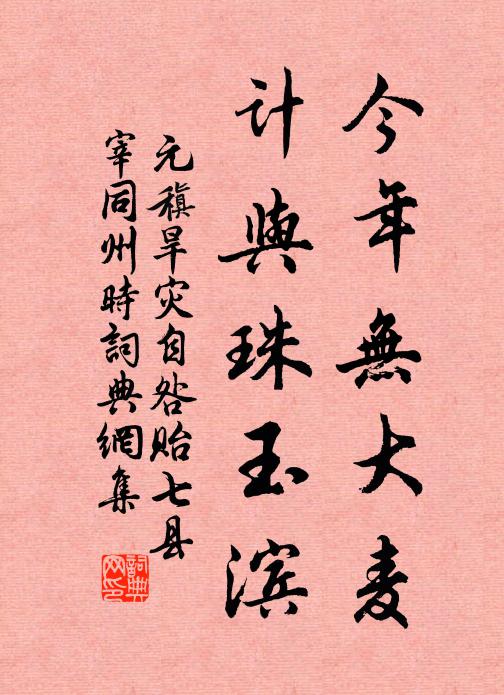 今年無大麦
计與珠玉滨
元稹旱灾自咎贻七县
宰同州時詞典網集
詞典
网印